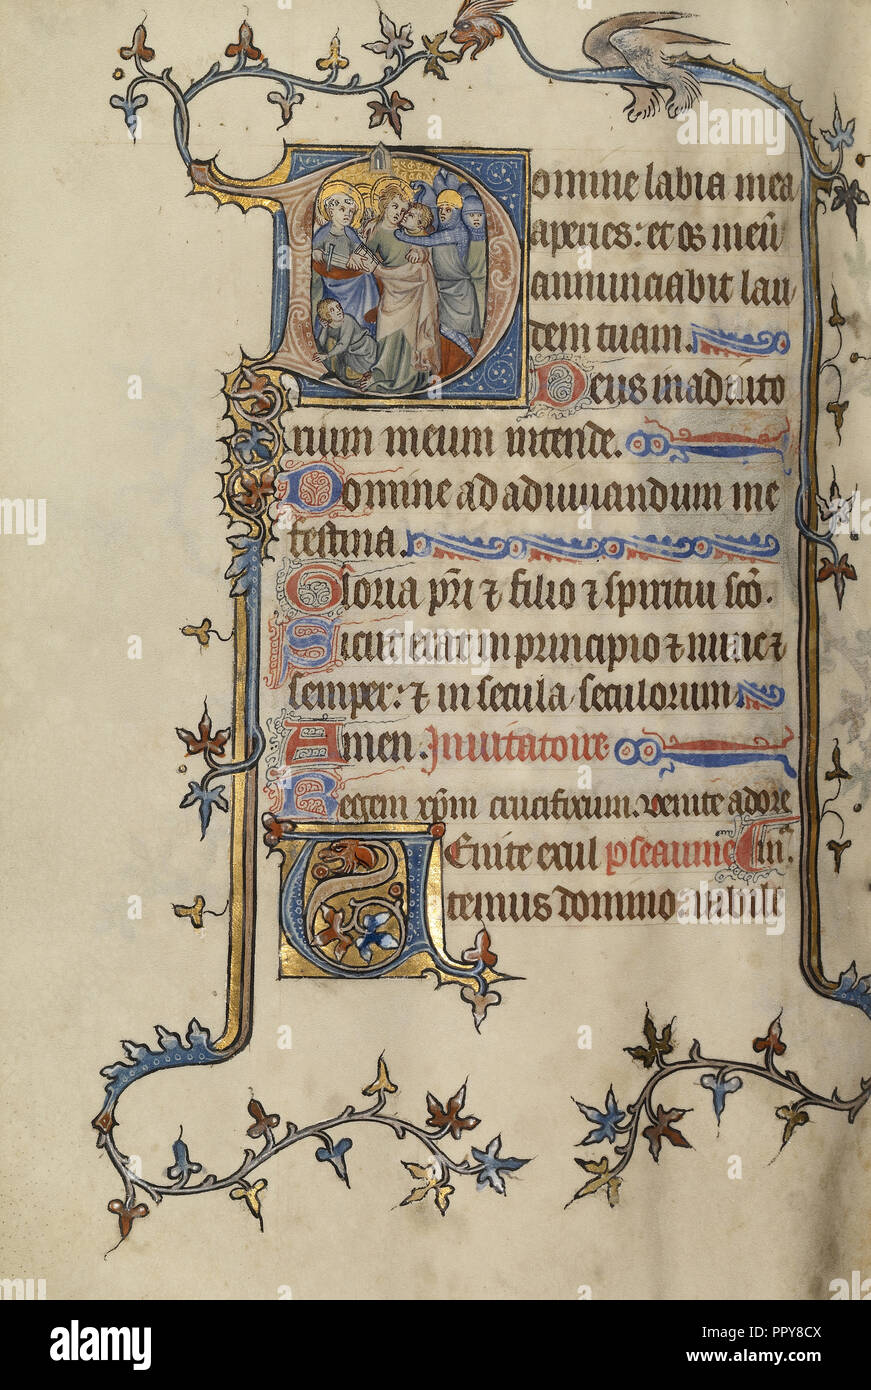 Domine labia mea
aperies: et os meū
annunciabit lau
dem tuam.
Deus in adiuto
rium meum intende.
Domine ad adiuuandum me
festina.
Gloria pr̄i ⁊ filio ⁊ spiritui sc̄o.
Sicut erat in principio ⁊ nunc ⁊
semper: ⁊ in secula seculorum
Amen. Inuitatoire
Regem xp̄m crucifixum. uenite adore
Uenite exul pseaume
temus domino: iubile
alamy
Image ID: PPY8CX
www.alamy.com